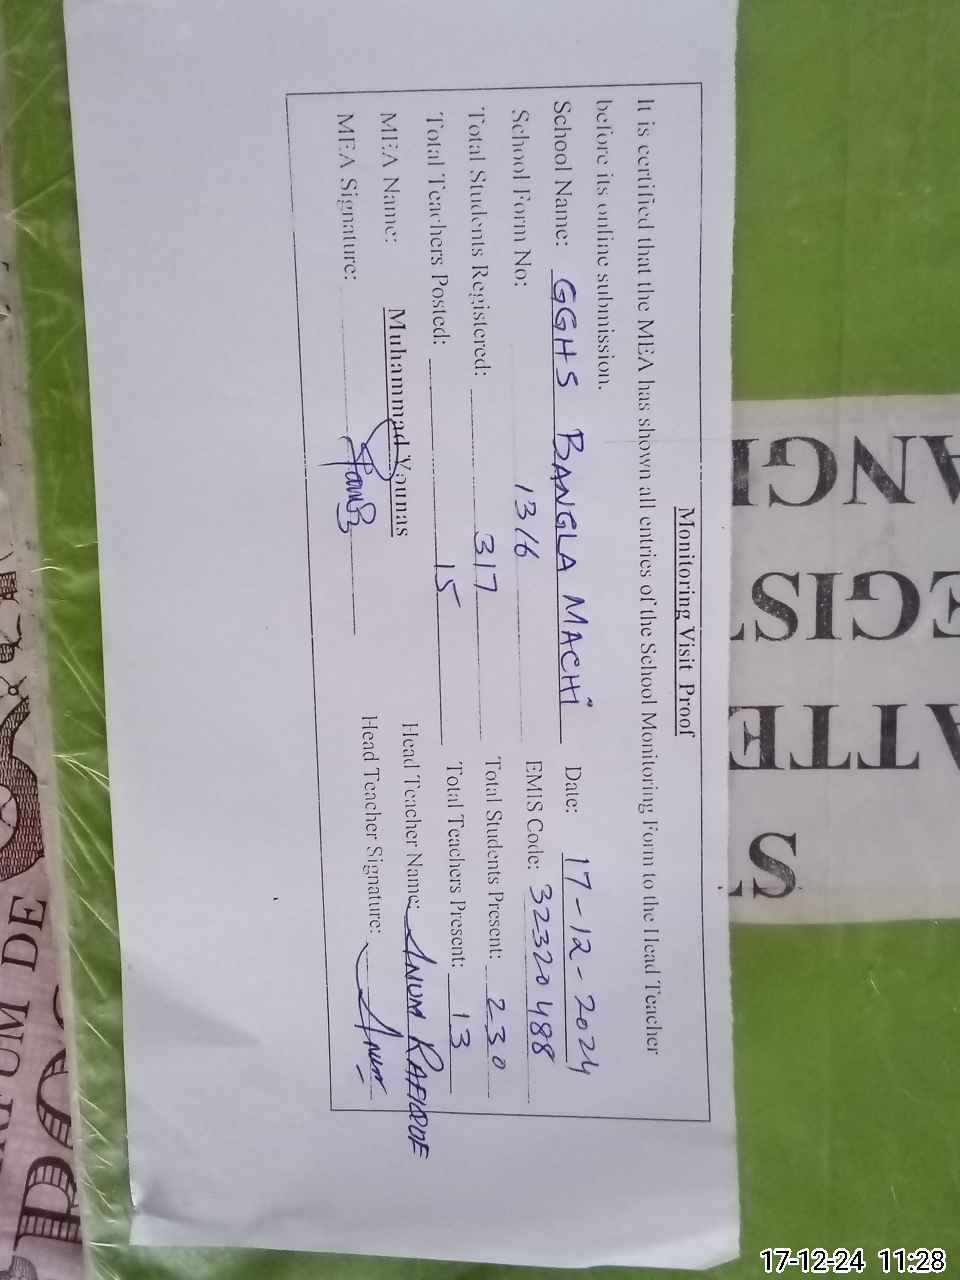 Monitoring Visit Proof
It is certified that the MEA has shown all entries of the School Monitoring Form to the Head Teacher
before its online submission.
School Name: GGHS BANGLA MACHI Date: 17-12-2024
School Form No: 1316 EMIS Code: 32320488
Total Students Registered: 317 Total Students Present: 230
Total Teachers Posted: 15 Total Teachers Present: 13
MEA Name: Muhammad Younas Head Teacher Name: ANUM RAFIQUE
MEA Signature: Head Teacher Signature: Anum
ANGL
EGIST
ATTE
ST
RFUM DE
17-12-24 11:28